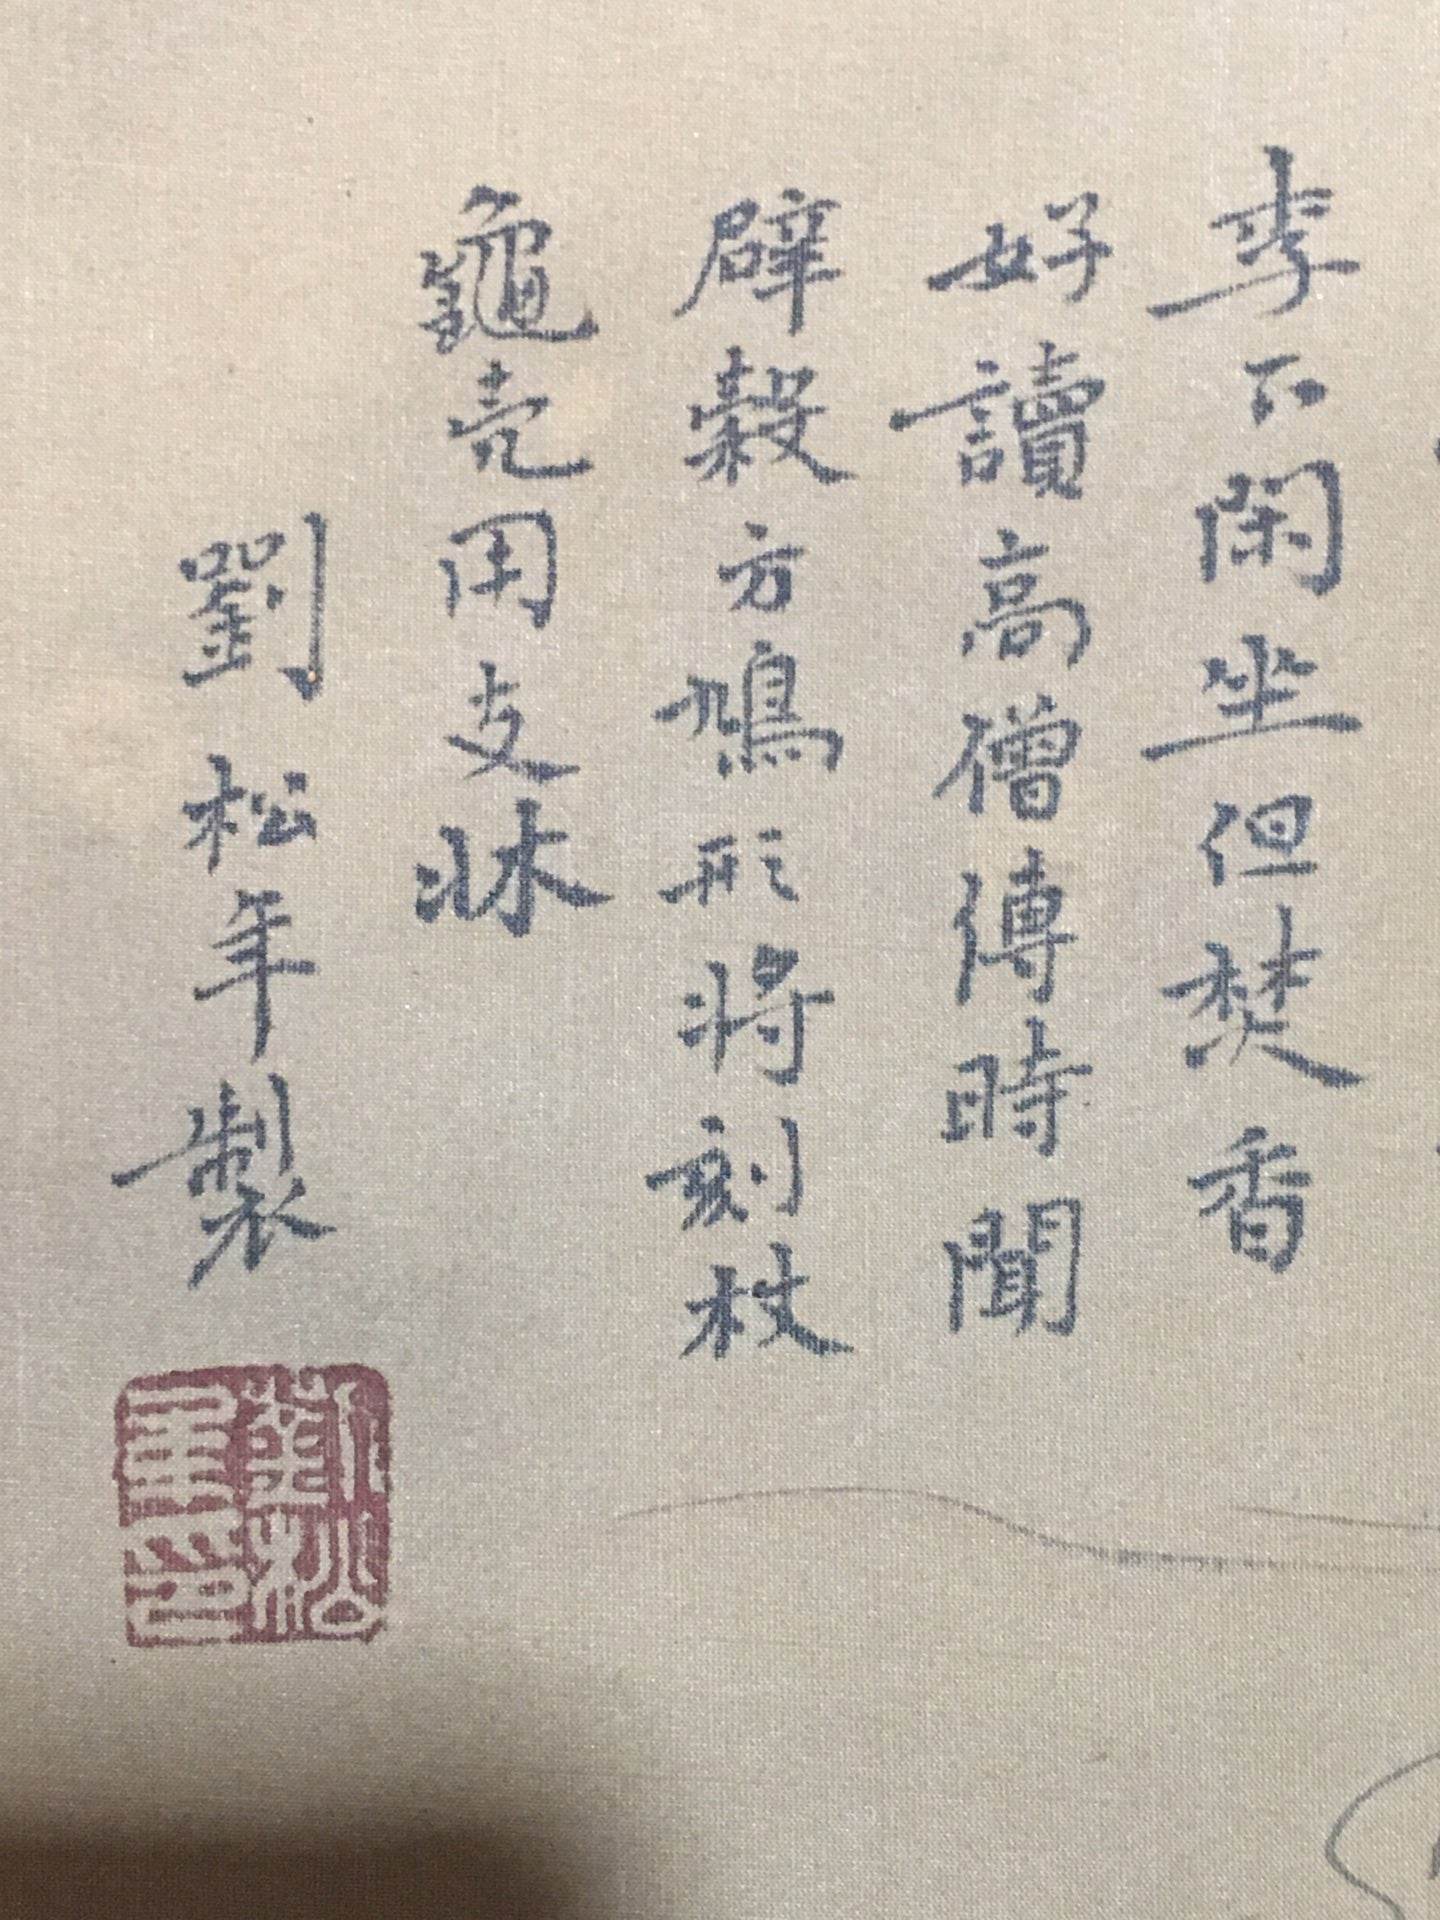 李下閑坐但焚香
好讀高僧傳時聞
辟穀方鳩形將刻杖
龜売用支牀
劉松年製
劉松年印